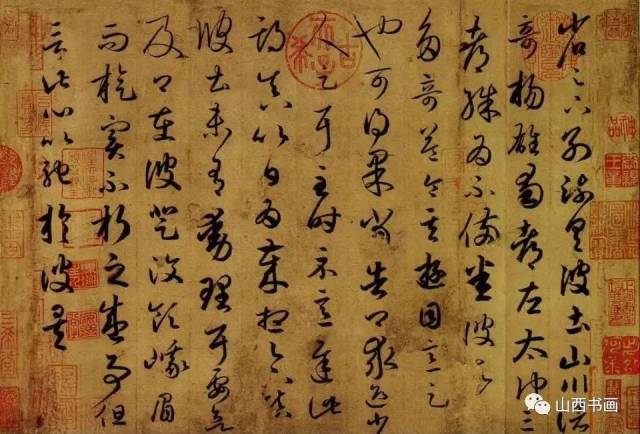 省足下別疏具彼土山川諸
奇揚雄蜀都左太沖三
都殊為不備悉彼故為
多奇益令其遊目意足
也可得果當告卿求迎少
人足耳至時示意遲此
期真以日為歲想足下鎮
彼土未有動理耳要欲
及卿在彼登汶領峨眉
而旋實不朽之盛事但
言此心以馳於彼矣
山西书画